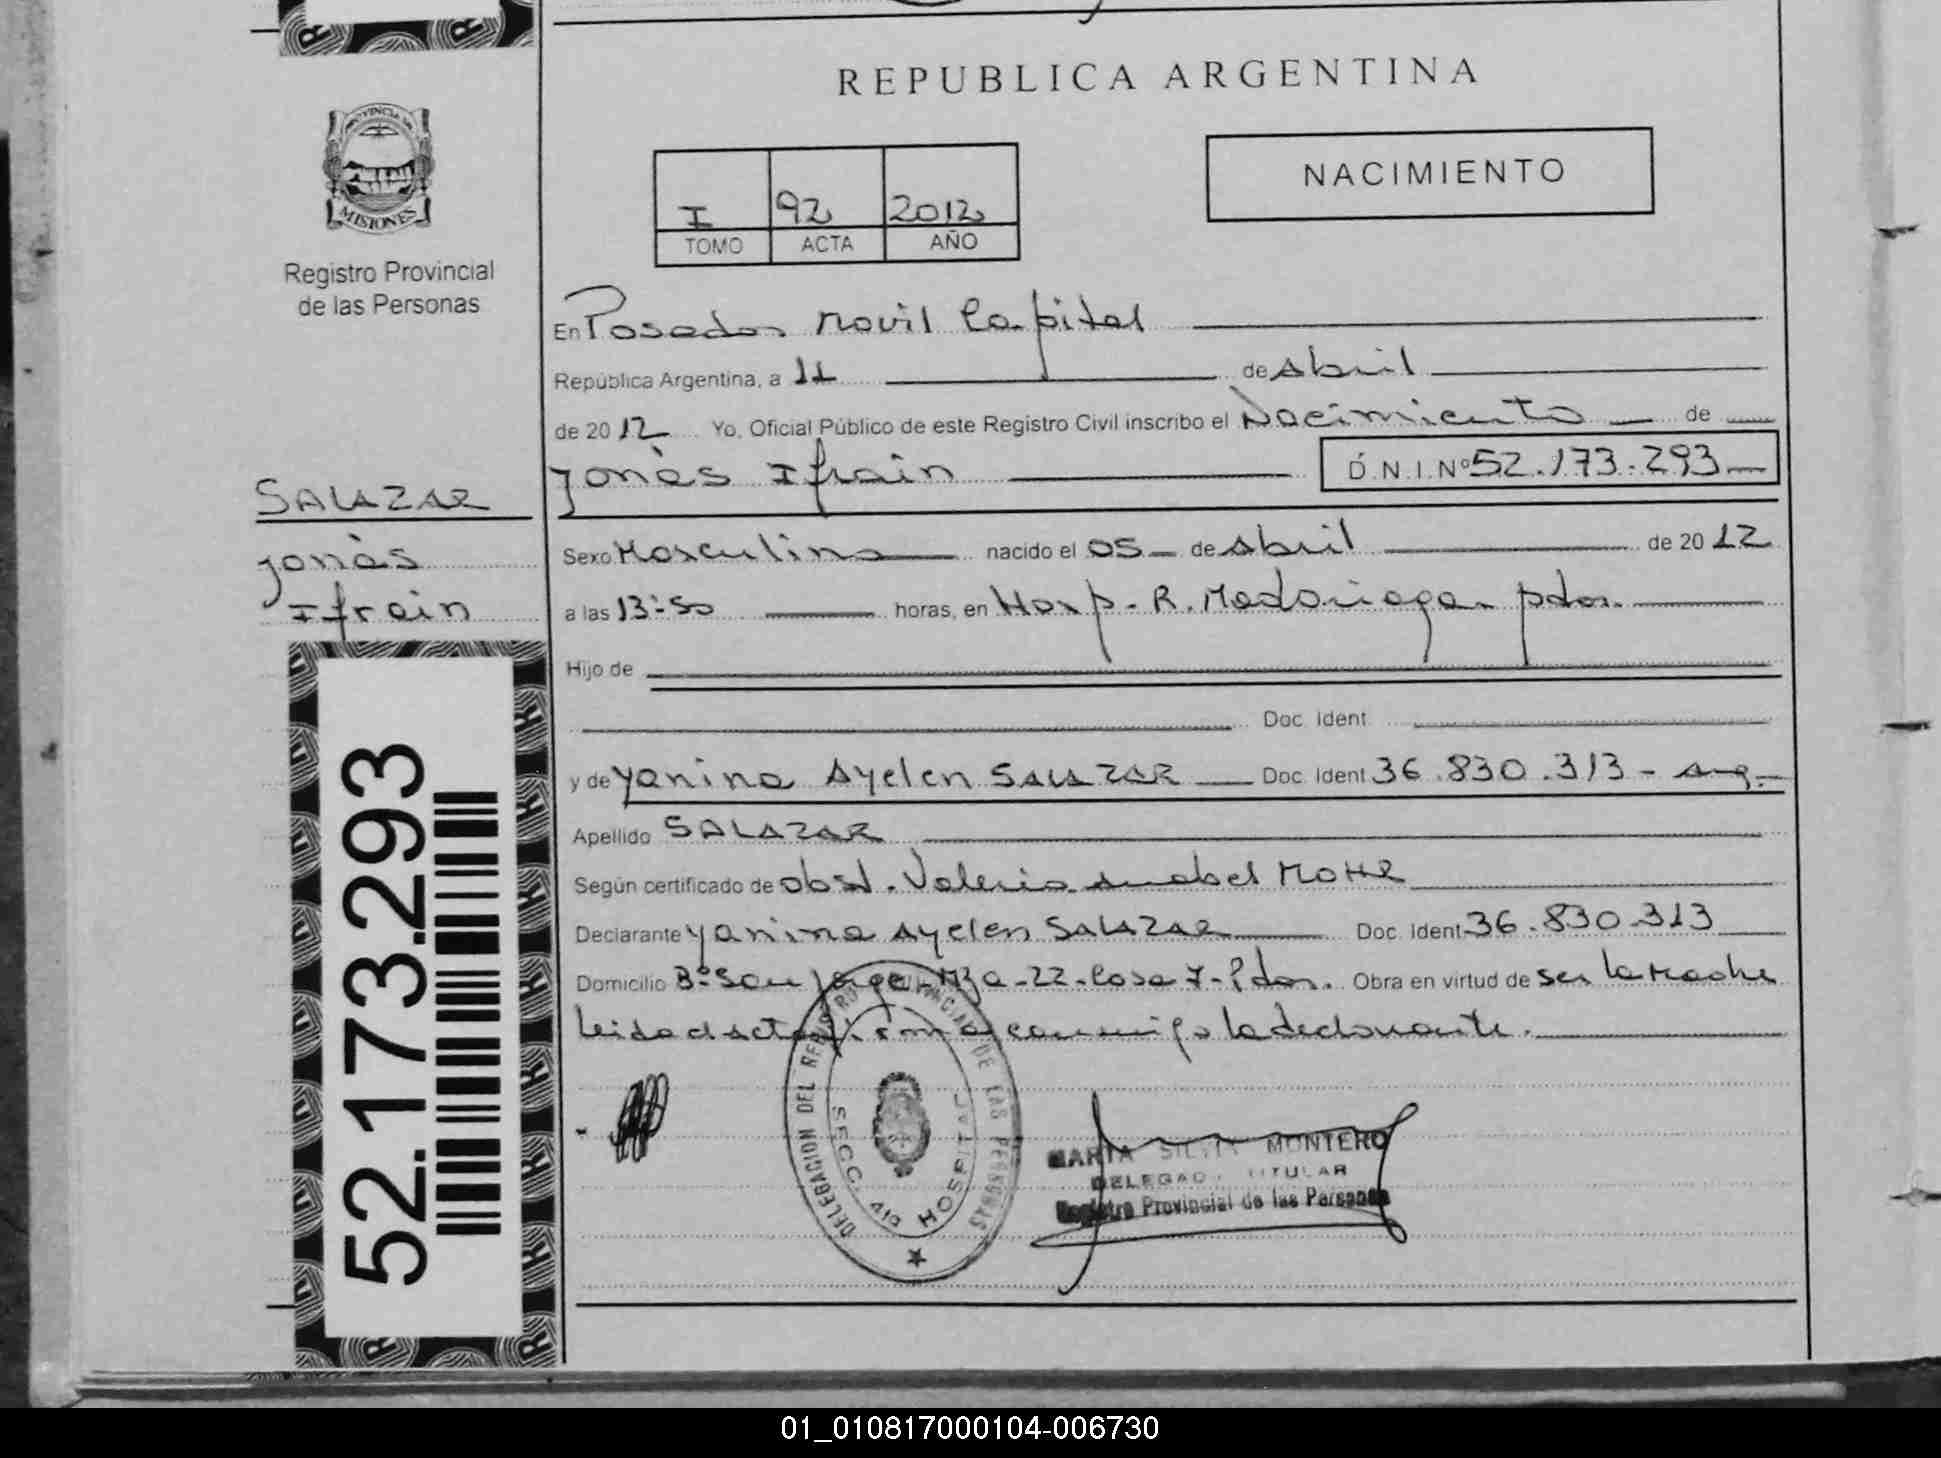 REPUBLICA ARGENTINA
PROVINCIA DE
MISIONES
Registro Provincial
de las Personas
NACIMIENTO
I 92 2012
TOMO ACTA AÑO
En Posadas Movil Capital
República Argentina, a 11 de Abril
de 2012 Yo, Oficial Público de este Registro Civil inscribo el Nacimiento de
Jonàs Ifrain D.N.I. Nº 52.173.293
SALAZAR
Jonàs
Ifrain
Sexo Masculino nacido el 05 de Abril de 2012
a las 13:50 horas, en Hosp. R. Madariaga - pdas.
Hijo de
Doc. Ident.
y de Yanina Ayelen SALAZAR Doc. Ident. 36.830.313 - Arg.
Apellido SALAZAR
Según certificado de Obst. Valeria Anabel
Declarante Yanina Ayelen SALAZAR Doc. Ident. 36.830.313
Domicilio Bº San Jorge - Mza - 22 - Casa 7 - Pdas. Obra en virtud de ser la Madre
leida el acta firma conmigo la declarante.
52.173.293
DELEGACION DEL REGISTRO PROVINCIAL DE LAS PERSONAS
SECC. 4ta HOSPITAL
MARTA SILVIA MONTERO
DELEGADA TITULAR
Registro Provincial de las Personas
01_010817000104-006730